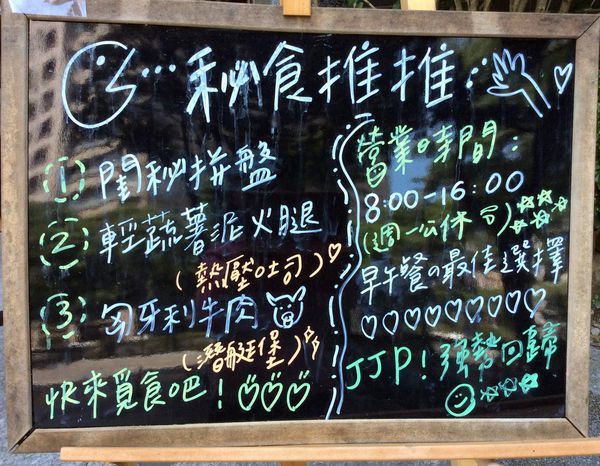 ...秘食推推
① 閨秘拼盤
② 輕蔬薯泥火腿
(熱壓吐司)
③ 匈牙利牛肉
(潛艇堡)
快來覓食吧！
營業時間：
8:00-16:00
(週一公休)
早午餐の最佳選擇
JJP！強勢回歸